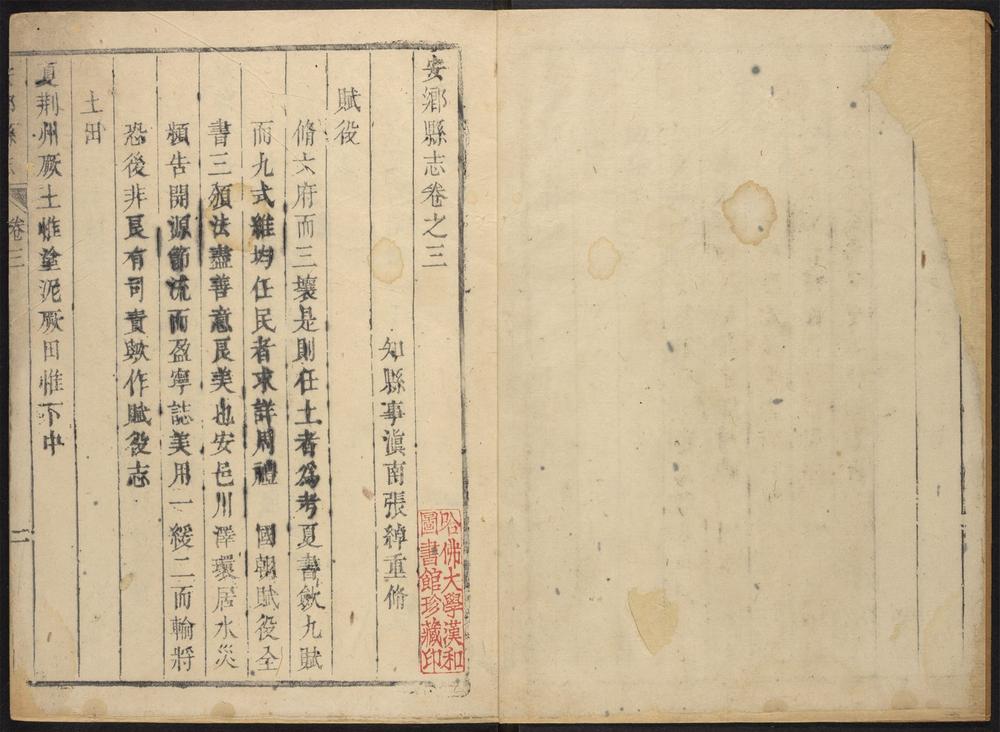 安鄉縣志卷之三
知縣事滇南張綽重脩
賦役
脩六府而三壤是則任土者為考夏書歛九賦
而九式維均任民者求詳周禮 國朝賦役全
書三頒法盡善意良美也安邑川澤環居水災
頻告開源節流而盈寧誌美用一緩二而輸將
恐後非良有司責歟作賦役志
土田
夏荆州厥土惟塗泥厥田惟下中
卷三
一
哈佛大學漢和
圖書館珍藏印